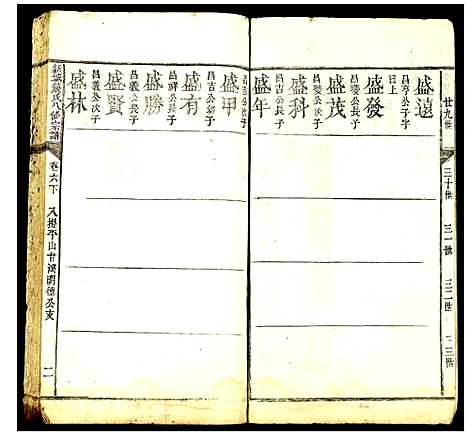 廿九世 三十世 三一世 三二世 三三世
昌亨公子
盛遠
曰上
盛發
昌發公長子
盛茂
昌發公次子
盛科
昌吉公長子
盛年
昌吉公次子
盛甲
昌吉公幼子
盛有
昌祥公長子
盛勝
昌義公長子
盛賢
昌義公次子
盛林
氏八修宗譜 卷六下 平山甘溪明德公支 二